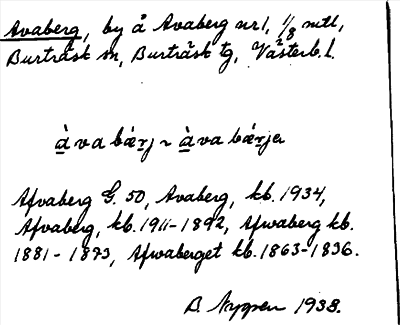 Avaberg, by å Avaberg nr 1, 1/8 mtl,
Burträsk sn, Burträsk tg, Västerb. l.
àva bǽrj ~ àva bǽrjer
Afvaberg G. 50, Avaberg, kb. 1934,
Afvaberg, kb. 1911-1892, Afwaberg kb.
1881-1873, Afwaberget kb. 1863-1836.
B. Nyppen 1938.